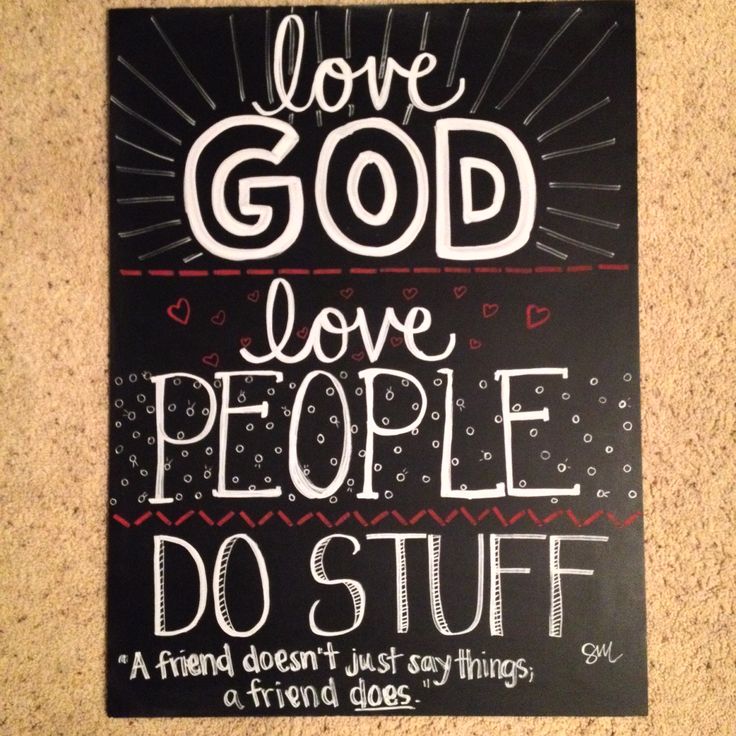 love
GOD
love
PEOPLE
DO STUFF
SM
"A friend doesn't just say things;
a friend does."